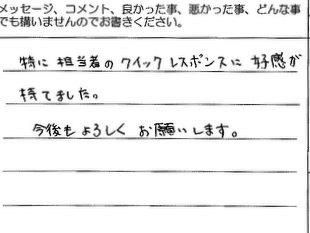 メッセージ、コメント、良かった事、悪かった事、どんな事
でも構いませんのでお書きください。
特に担当者のクイックレスポンスに好感が
持てました。
今後もよろしくお願いします。